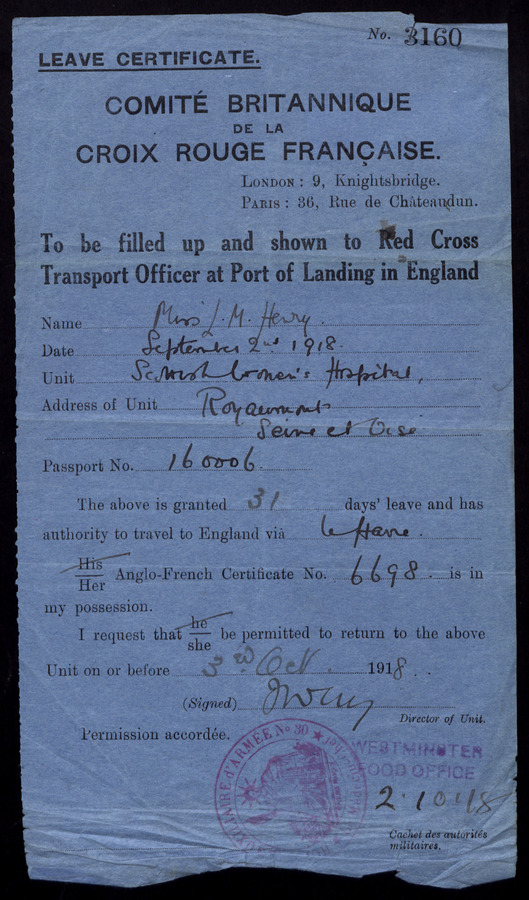 No. 3160
LEAVE CERTIFICATE.
COMITÉ BRITANNIQUE
DE LA
CROIX ROUGE FRANÇAISE.
LONDON: 9, Knightsbridge.
PARIS: 36, Rue de Châteaudun.
To be filled up and shown to Red Cross
Transport Officer at Port of Landing in England
Name Miss L. M. Henry.
Date September 2nd 1918.
Unit Scottish Women's Hospital,
Address of Unit Royaumont
Seine et Oise
Passport No. 160006.
The above is granted 31 days' leave and has
authority to travel to England viâ Le Havre.
His
Her Anglo-French Certificate No. 6698. is in
my possession.
I request that he
she be permitted to return to the above
Unit on or before 3rd Oct. 1918.
(Signed)
Director of Unit.
Permission accordée.
D'ARMÉE No 30 ★
WESTMINSTER
FOOD OFFICE
2.10.18
Cachet des autorités
militaires.